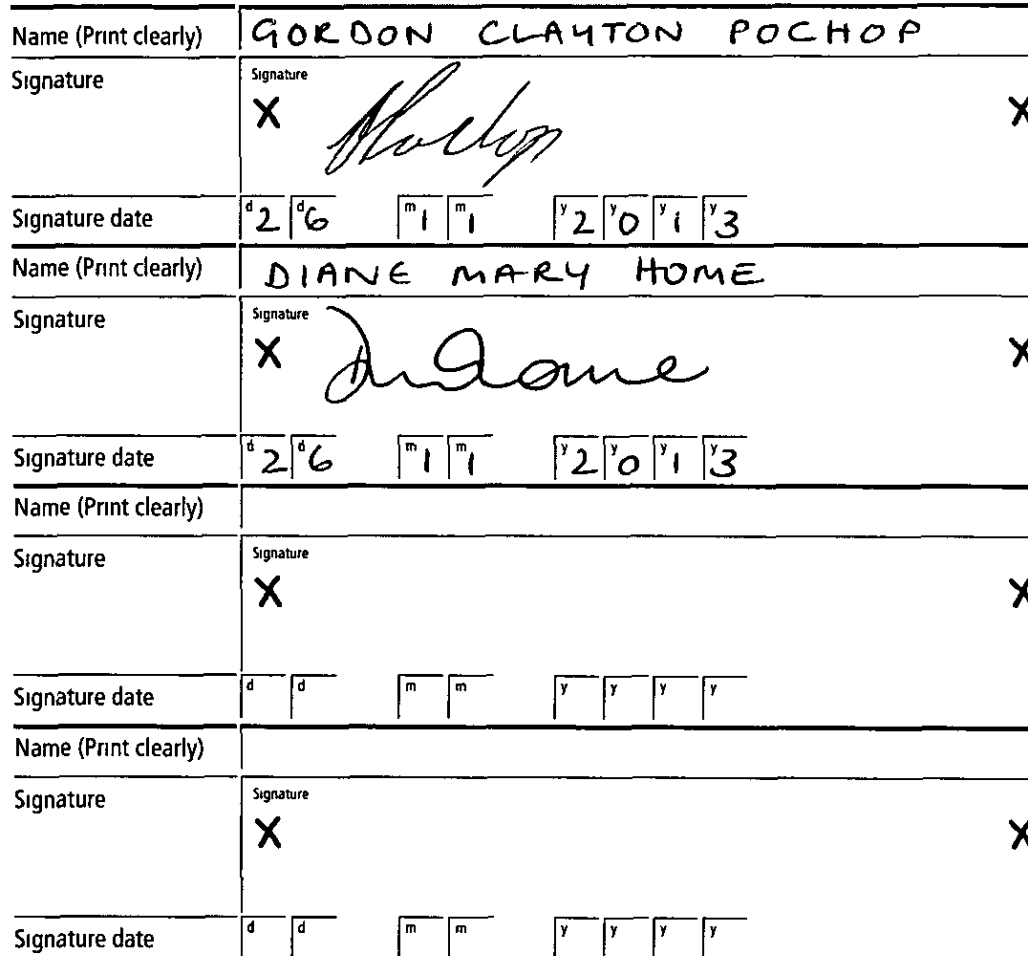 Name (Print clearly) GORDON CLAYTON POCHOP
Signature Signature
X X
Signature date d2 d6 m1 m1 y2 y0 y1 y3
Name (Print clearly) DIANE MARY HOME
Signature Signature
X X
Signature date d2 d6 m1 m1 y2 y0 y1 y3
Name (Print clearly)
Signature Signature
X X
Signature date d d m m y y y y
Name (Print clearly)
Signature Signature
X X
Signature date d d m m y y y y